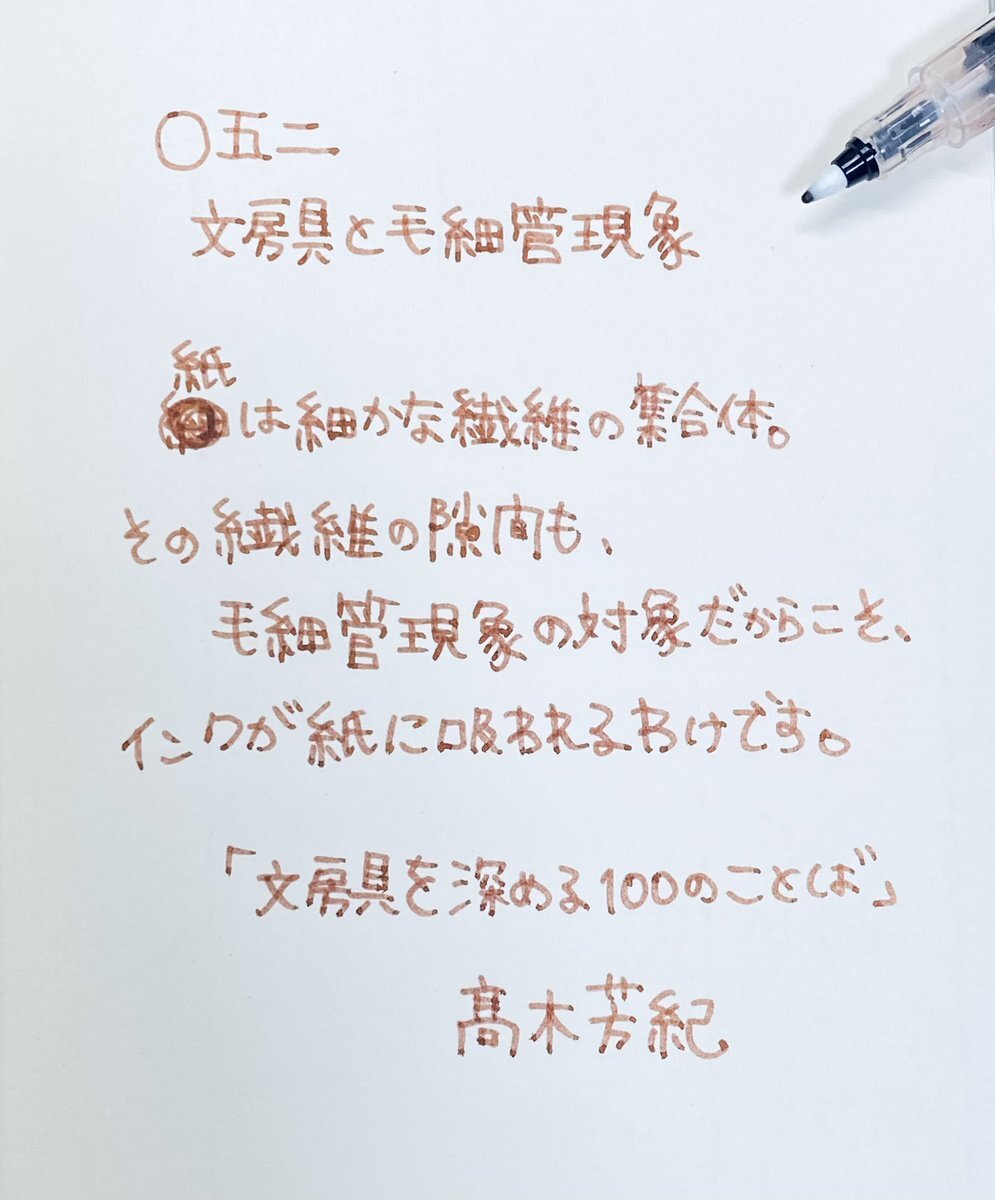 〇五二
文房具と毛細管現象
紙
は細かな繊維の集合体。
その繊維の隙間も、
毛細管現象の対象だからこそ、
インクが紙に吸われるわけです。
「文房具を深める100のことば」
髙木芳紀